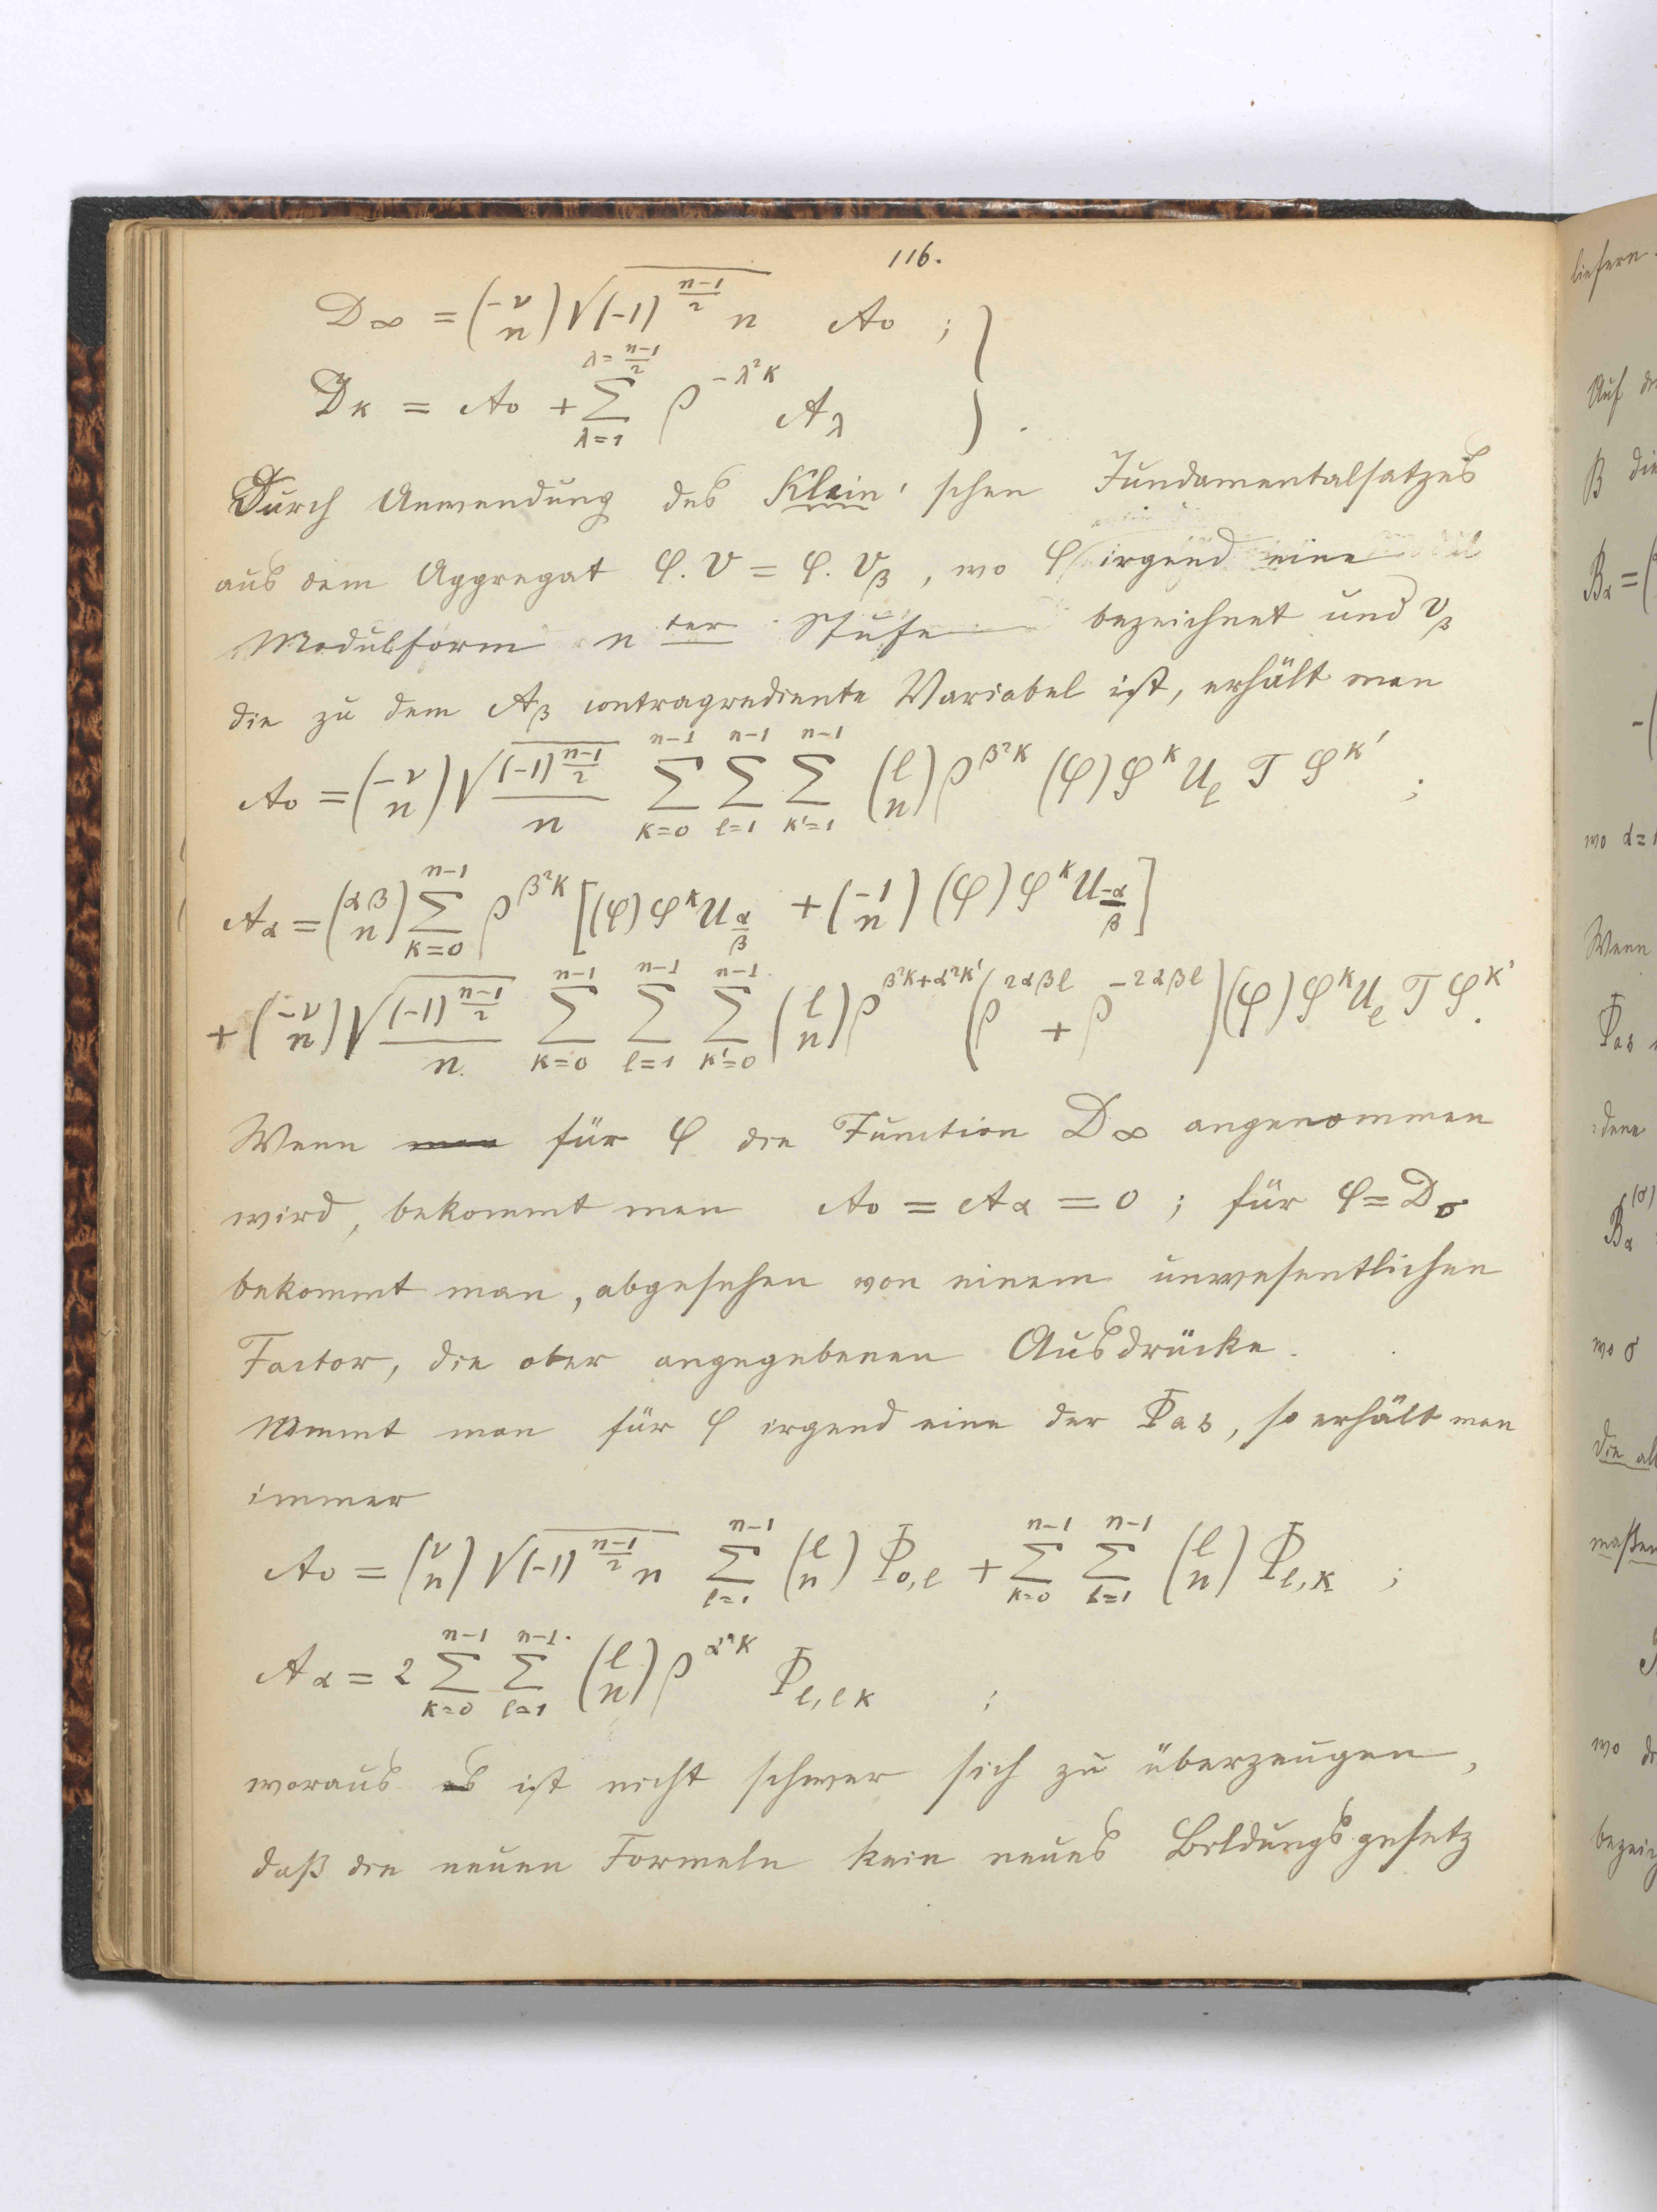 116.
D∞ = (-ν/n) √((-1)^{(n-1)/2} n) A₀ ;
D_κ = A₀ + Σ_{λ=1}^{λ=(n-1)/2} ρ^{-λ²κ} A_λ .
Durch Anwendung des Klein'schen Fundamentalsatzes
aus dem Aggregat φ. v = φ. v_β , wo φ irgend eine
Modulform n ter Stufe bezeichnet und v_β
die zu dem A_β contragrediente Variabel ist, erhält man
A₀ = (-ν/n) √((-1)^{(n-1)/2}) / n Σ_{κ=0}^{n-1} Σ_{l=1}^{n-1} Σ_{κ'=1}^{n-1} (l/n) ρ^{β²κ} (φ) S^κ U_l T S^{κ'} ;
A_α = (αβ/n) Σ_{κ=0}^{n-1} ρ^{β²κ} [(φ) S^κ U_{α/β} + (-1/n) (φ) S^κ U_{-α/β}]
+ (-ν/n) √((-1)^{(n-1)/2}) / n Σ_{κ=0}^{n-1} Σ_{l=1}^{n-1} Σ_{κ'=0}^{n-1} (l/n) ρ^{β²κ+α²κ'} (ρ^{2αβl} + ρ^{-2αβl}) (φ) S^κ U_l T S^{κ'} .
Wenn man für φ die Function D∞ angenommen
wird, bekommt man A₀ = A_α = 0 ; für φ = D₀
bekommt man, abgesehen von einem unwesentlichen
Factor, die ober angegebenen Ausdrücke.
Nimmt man für φ irgend eine der Φ_{αβ}, so erhält man
immer
A₀ = (ν/n) √((-1)^{(n-1)/2} n) Σ_{l=1}^{n-1} (l/n) Φ_{0,l} + Σ_{κ=0}^{n-1} Σ_{l=1}^{n-1} (l/n) Φ_{l,κ} ;
A_α = 2 Σ_{κ=0}^{n-1} Σ_{l=1}^{n-1} (l/n) ρ^{α²κ} Φ_{l,lκ} ;
woraus es ist nicht schwer sich zu überzeugen,
daß die neuen Formeln kein neues Bildungsgesetz
liefern.
wo α = 1
Wenn
wo σ
wo